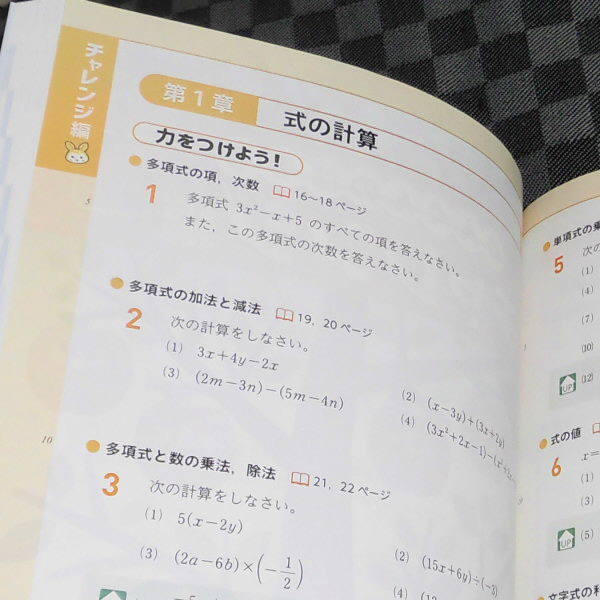 チャレンジ編
第1章 式の計算
力をつけよう!
多項式の項，次数 16〜18ページ
1 多項式 3x²−x+5 のすべての項を答えなさい。
また，この多項式の次数を答えなさい。
5
多項式の加法と減法 19，20ページ
2 次の計算をしなさい。
(1) 3x+4y−2x
(2) (x−3y)+(3x+2y)
(3) (2m−3n)−(5m−4n)
(4) (3x²+2x−1)−(x²+
10
多項式と数の乗法，除法 21，22ページ
3 次の計算をしなさい。
(1) 5(x−2y)
(2) (15x+6y)÷(−3)
(3) (2a−6b)×(−1/2)
(4)
単項式の乗
5 次の
(1)
(4)
(7)
(10)
UP (12)
式の値
6 x=
(1)
(3)
UP (5)
文字式の利